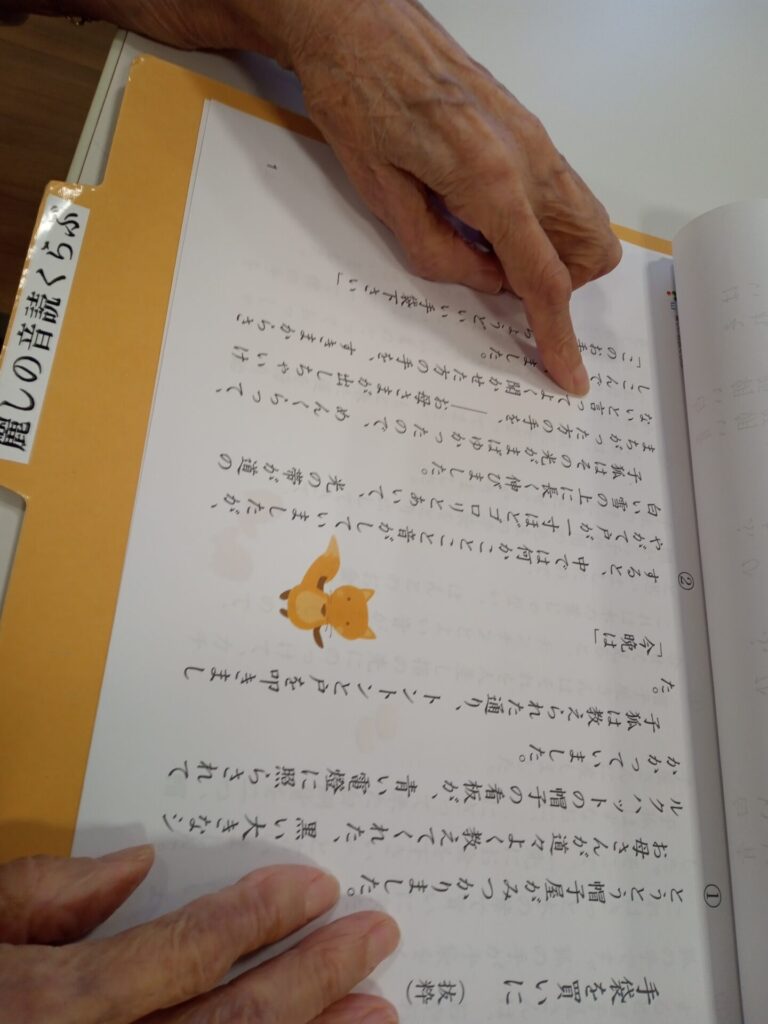 麗しの音読くらぶ
手袋を買いに　（抜粋）
①
とうとう帽子屋がみつかりました。
お母さんが道々よく教えてくれた、黒い大きなシ
ルクハットの帽子の看板が、青い電燈に照らされて
かかっていました。
子狐は教えられた通り、トントンと戸を叩きまし
た。
「今晩は」
②
すると、中では何かことこと音がしていましたが、
やがて戸が一寸ほどゴロリとあいて、光の帯が道の
白い雪の上に長く伸びました。
子狐はその光がまばゆかったので、めんくらって、
まちがった方の手を、――お母さまが出しちゃいけ
ないと言ってよく聞かせた方の手を、すきまからさ
しこんで ました。
「このお手 ちょうどいい手袋下さい」
1